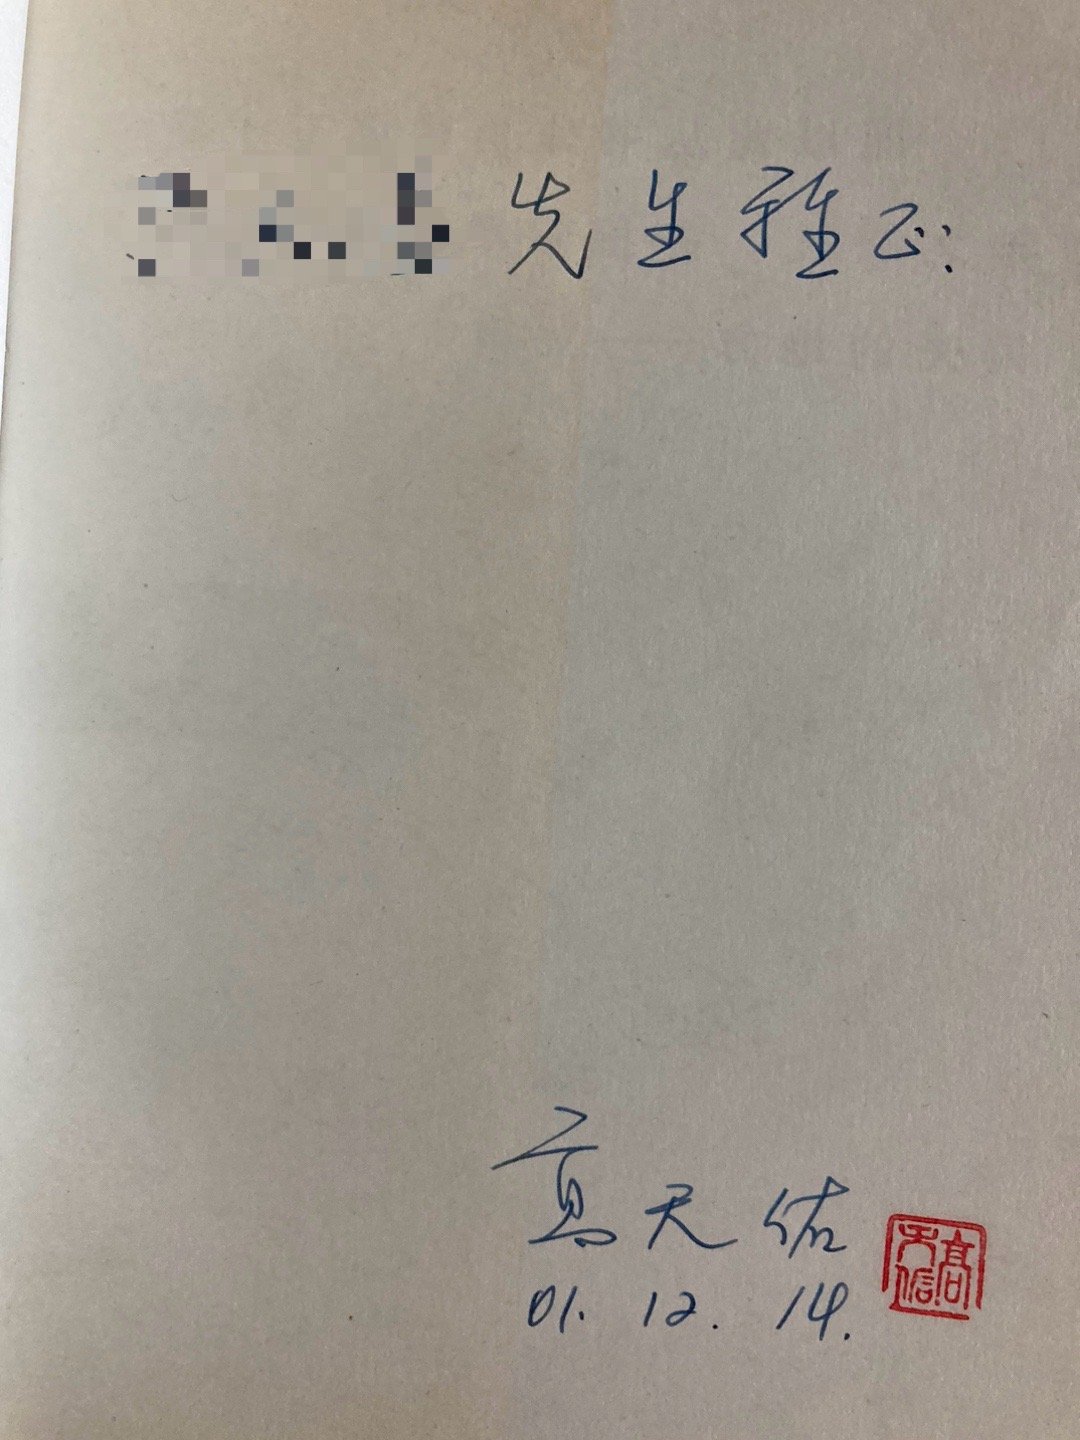 先生雅正:
高天佑
01.12.14.
高天佑